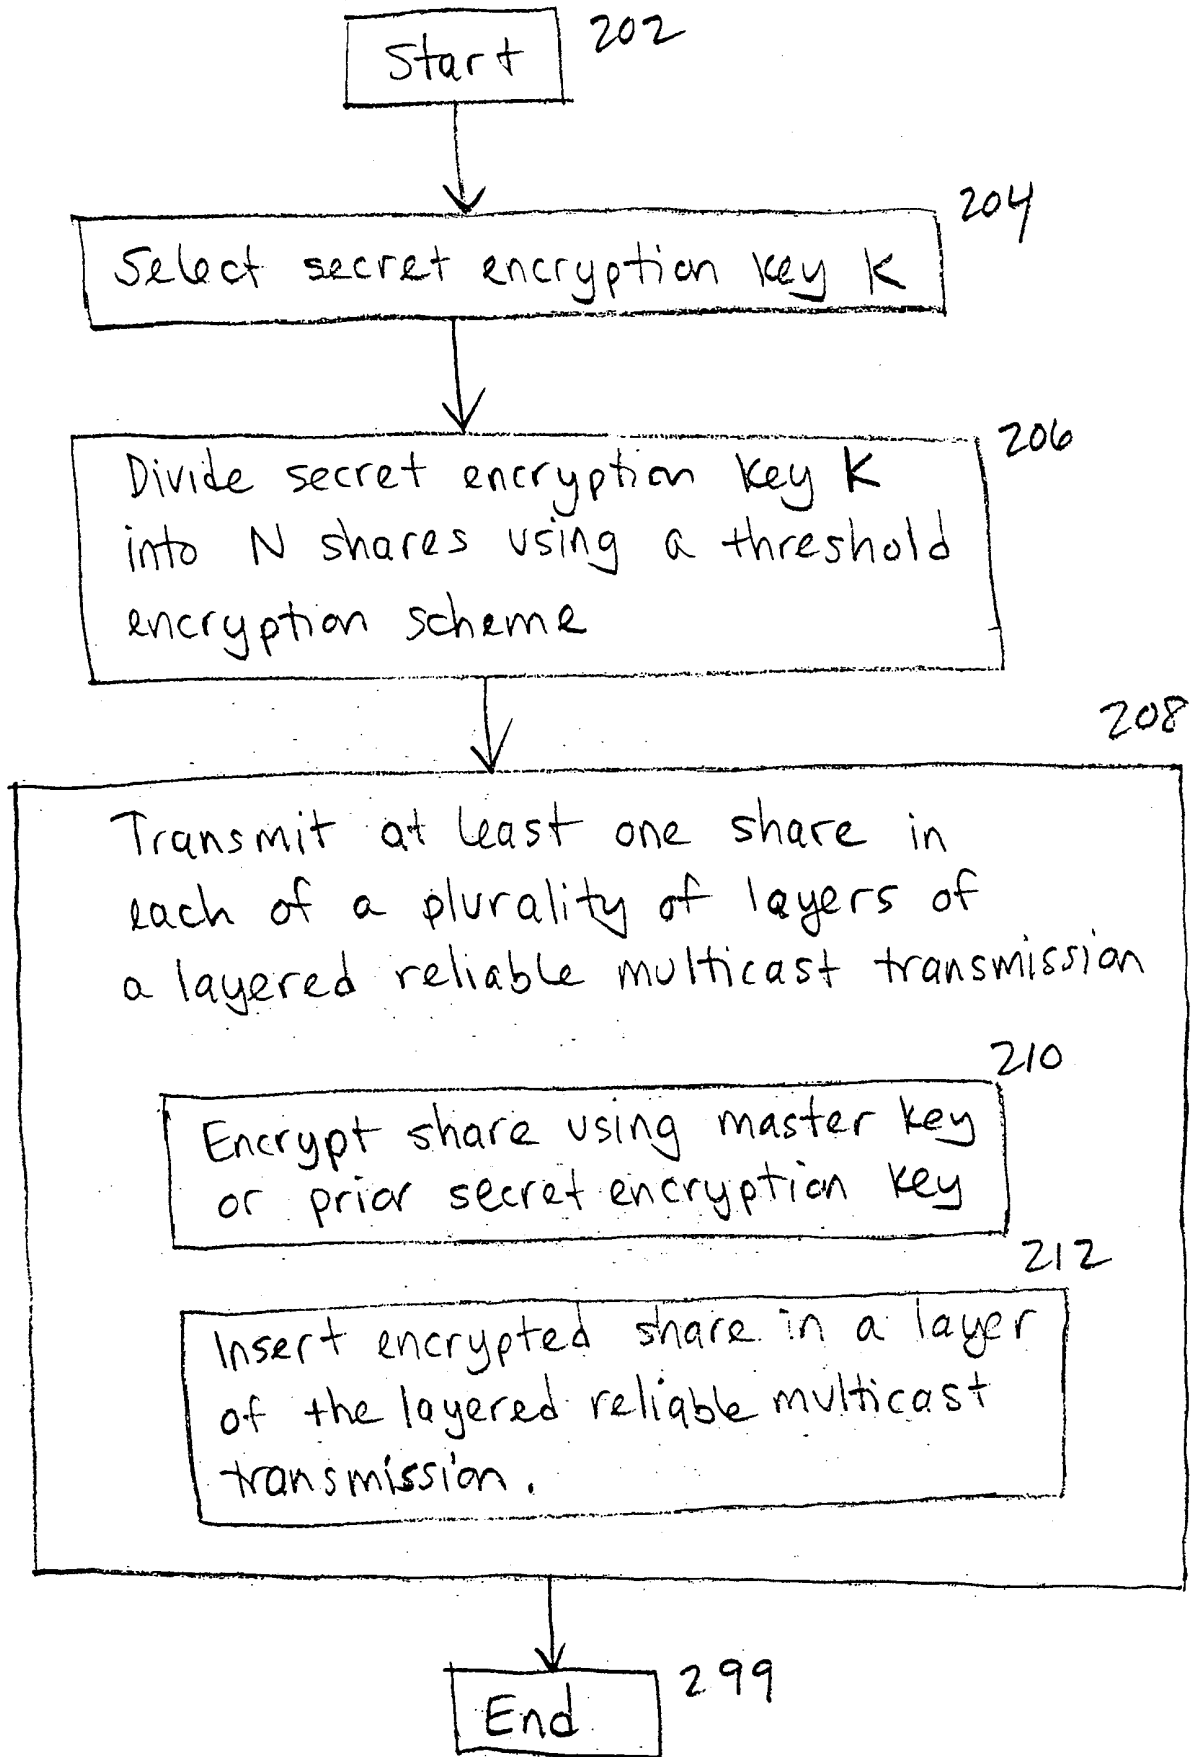 Start 202
204
Select secret encryption key K
206
Divide secret encryption key K
into N shares using a threshold
encryption scheme
208
Transmit at least one share in
each of a plurality of layers of
a layered reliable multicast transmission
210
Encrypt share using master key
or prior secret encryption key
212
Insert encrypted share in a layer
of the layered reliable multicast
transmission.
End 299